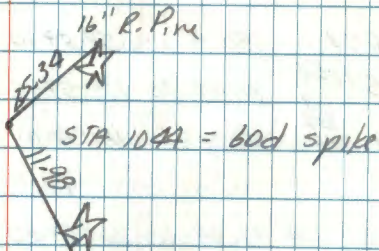 16" R. Pine
STA 1044 = 60d spike
11.98